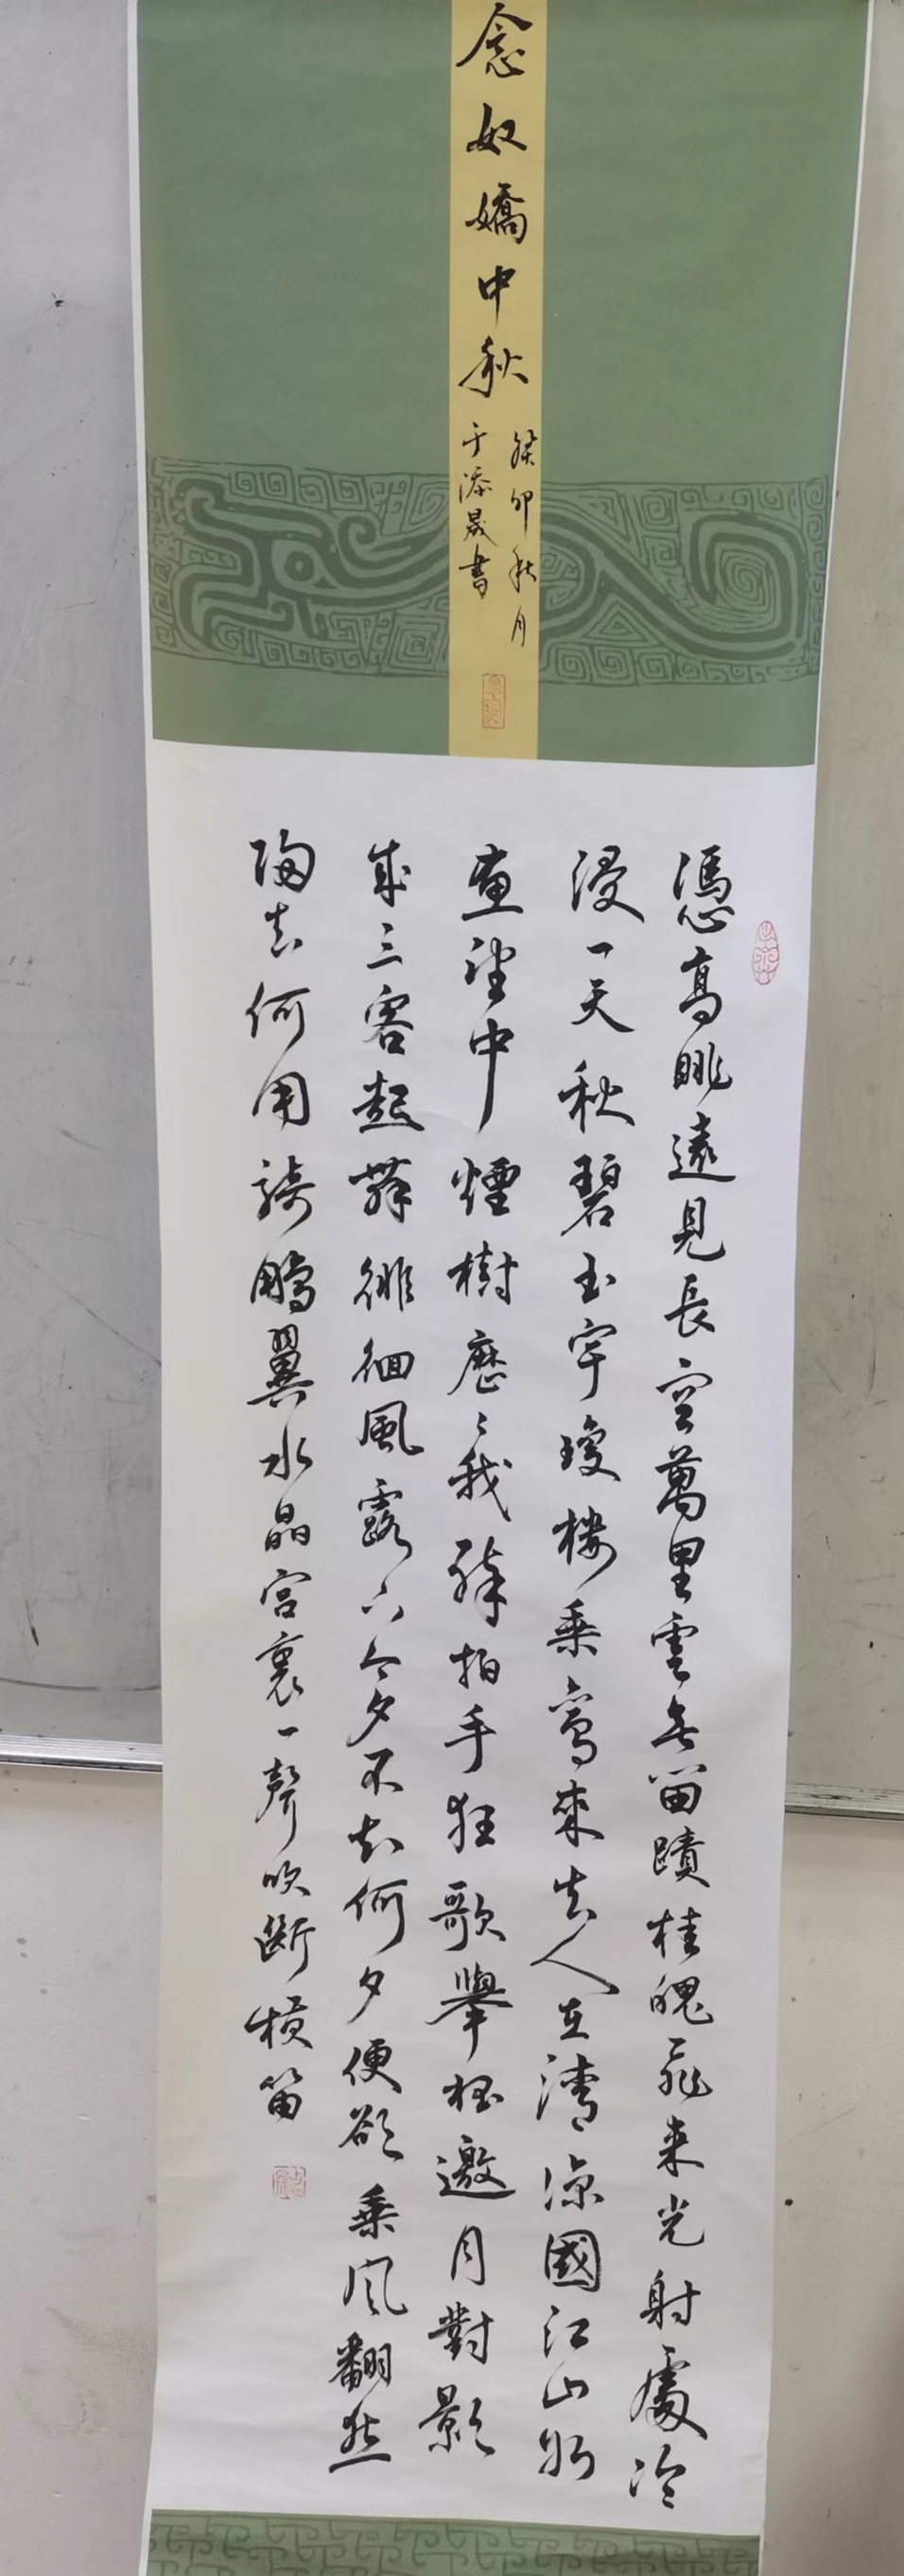 念奴嬌中秋
癸卯秋月
于添晟書
憑高眺遠見長空萬里雲無留蹟桂魄飛來光射處冷
浸一天秋碧玉宇瓊樓乘鸞來去人在清涼國江山如
畫望中煙樹歷〻我醉拍手狂歌舉杯邀月對影
成三客起舞徘徊風露下今夕不知何夕便欲乘風翻然
歸去何用騎鵬翼水晶宮裏一聲吹斷橫笛